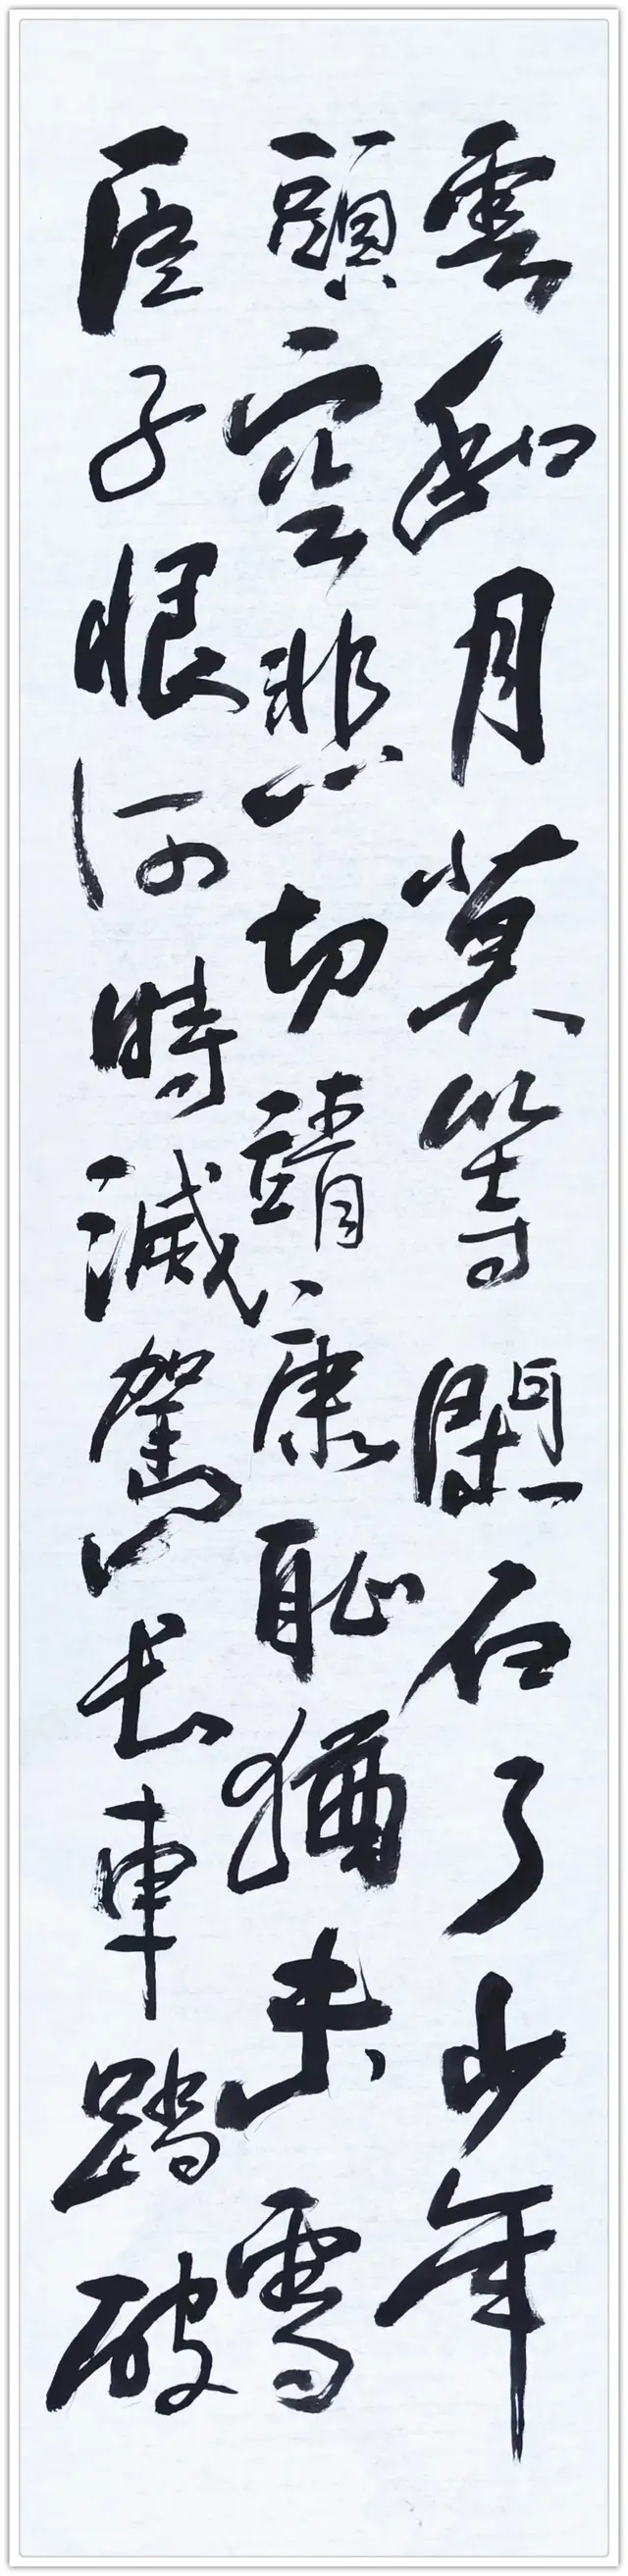 雲和月莫等閑白了少年
頭空悲切靖康耻猶未雪
臣子恨何時滅駕長車踏破